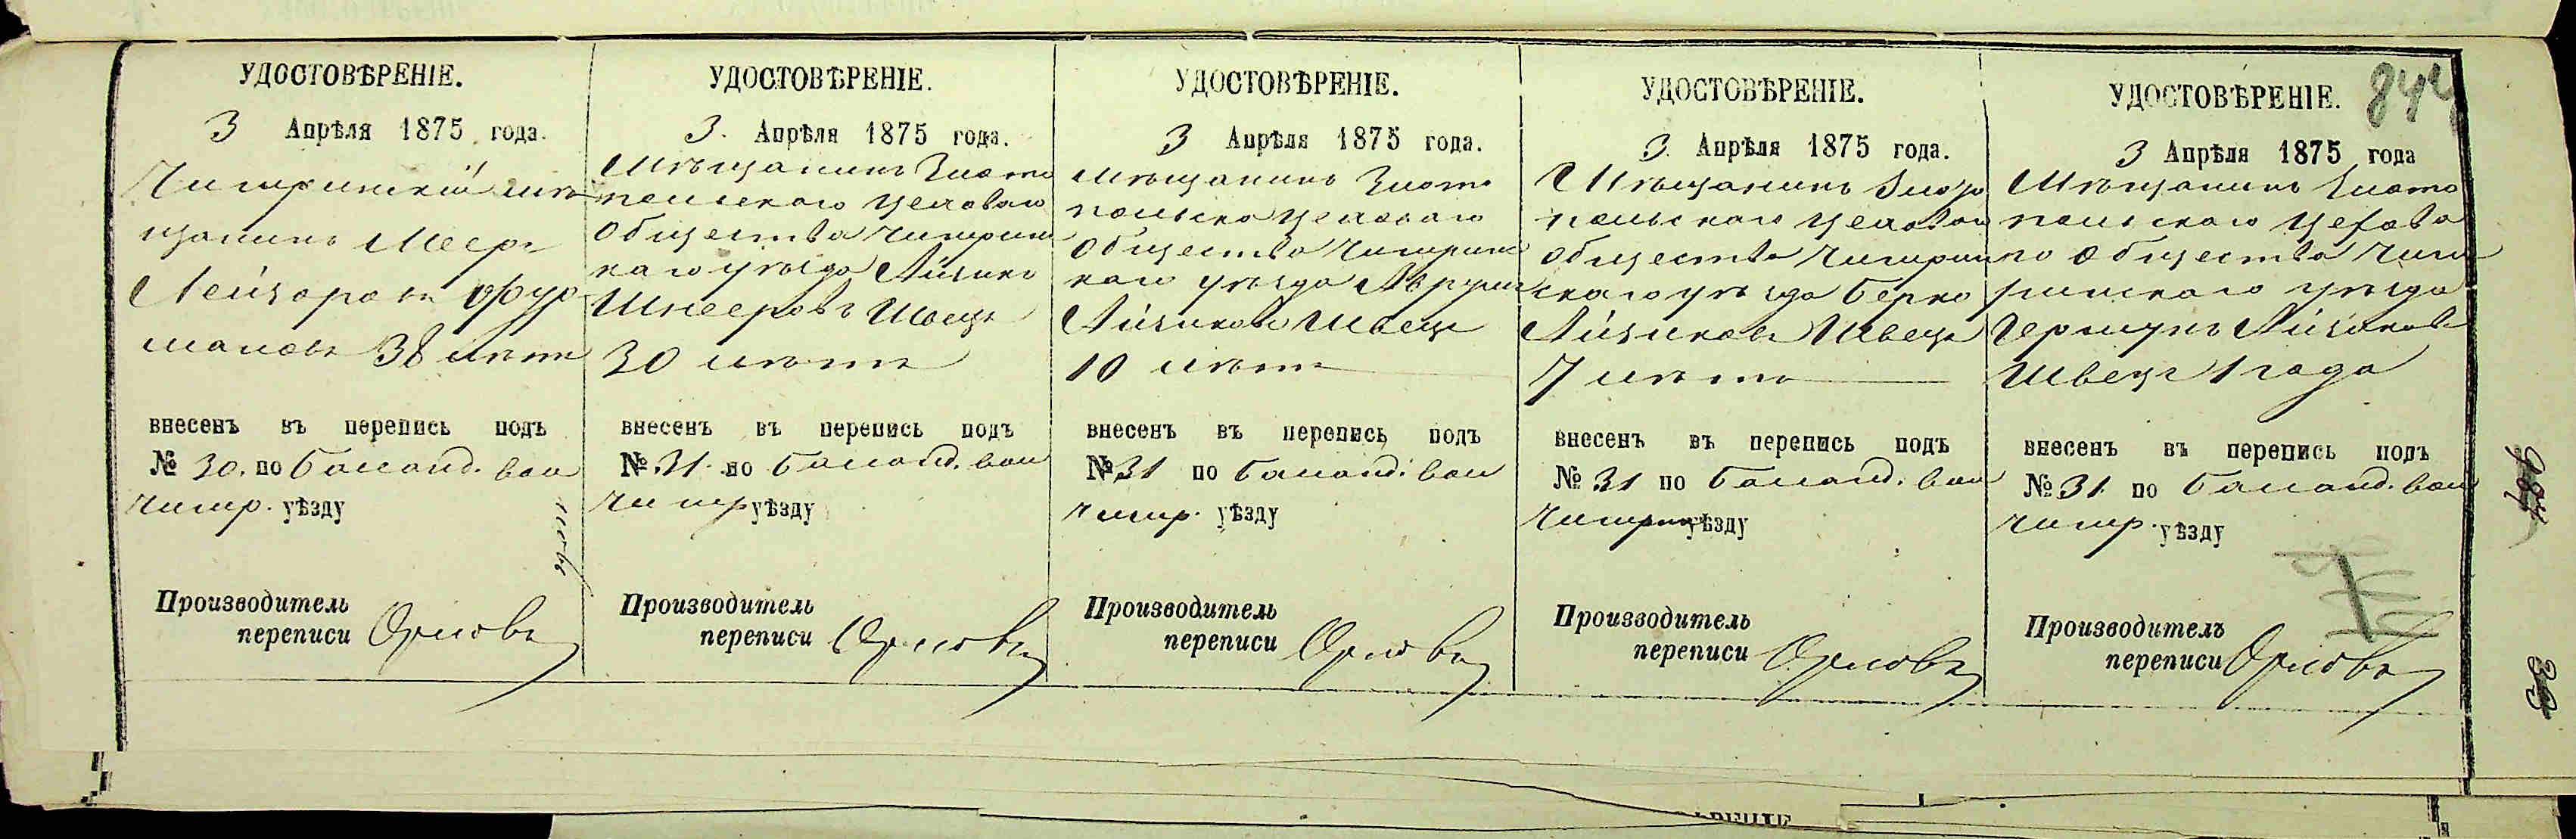 УДОСТОВѢРЕНІЕ.
3 Апрѣля 1875 года.
Чигиринскій мѣ
щанинъ Мееръ
Лейзоровъ Фур
мановъ 38 лѣтъ
внесенъ въ перепись подъ
№ 30. по Баланд. вол
Чигир. уѣзду
Производитель
переписи Орловъ
УДОСТОВѢРЕНІЕ.
3. Апрѣля 1875 года.
Мѣщанинъ Злато
польскаго цеховаго
Общества Чигирин
каго уѣзда Айзикъ
Шнееровъ Швецъ
30 лѣтъ
внесенъ въ перепись подъ
№ 31. по Баланд. вол
Чигир уѣзду
Производитель
переписи Орловъ
УДОСТОВѢРЕНІЕ.
3 Апрѣля 1875 года.
Мѣщанинъ Злато
польска цеховаго
Общества Чигиринс
каго уѣзда Аврумъ
Айзиковъ Швецъ
10 лѣтъ
внесенъ въ перепись подъ
№ 31 по Баланд. вол
Чигир. уѣзду
Производитель
переписи Орловъ
УДОСТОВѢРЕНІЕ.
3. Апрѣля 1875 года.
Мѣщанинъ Злато
польскаго цеховаго
Общества Чигирин
скаго уѣзда Берко
Айзиковъ Швецъ
7 лѣтъ
внесенъ въ перепись подъ
№ 31 по Баланд. вол
Чигирин уѣзду
Производитель
переписи Орловъ
УДОСТОВѢРЕНІЕ.
3 Апрѣля 1875 года
Мѣщанинъ Злато
польскаго цехова
го Общества Чиги
ринскаго уѣзда
Гершунъ Айзиковъ
Швецъ 1 года
внесенъ въ перепись подъ
№ 31. по Баланд. вол
Чигир. уѣзду
Производитель
переписи Орловъ